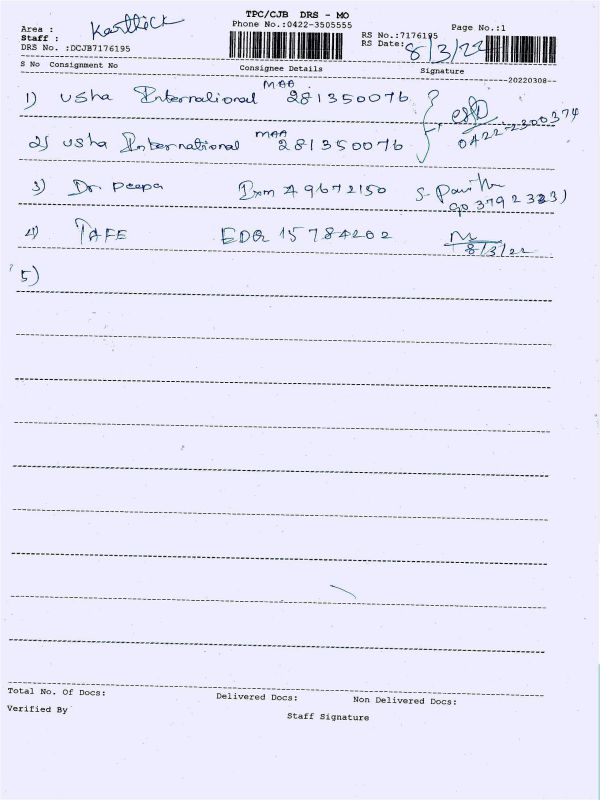 TPC/CJB DRS - MO
Phone No.:0422-3505555
Page No.:1
Area :
Karthick
Staff :
DRS No. :DCJB7176195
RS No.:7176195
RS Date: 8/3/22
S No Consignment No Consignee Details Signature
20220308
1) Usha International MAA 281350076
0422-2300374
2) Usha International MAA 281350076
3) Dr peepa 49672150
4) TAFE EDQ 15784202
8/3/22
5)
Total No. Of Docs: Delivered Docs: Non Delivered Docs:
Verified By
Staff Signature